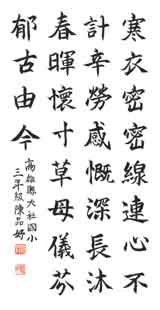 寒衣密密線連心不
計辛勞感慨深長沐
春暉懷寸草母儀芬
郁古由今
高雄縣大社國小
三年級陳品妤